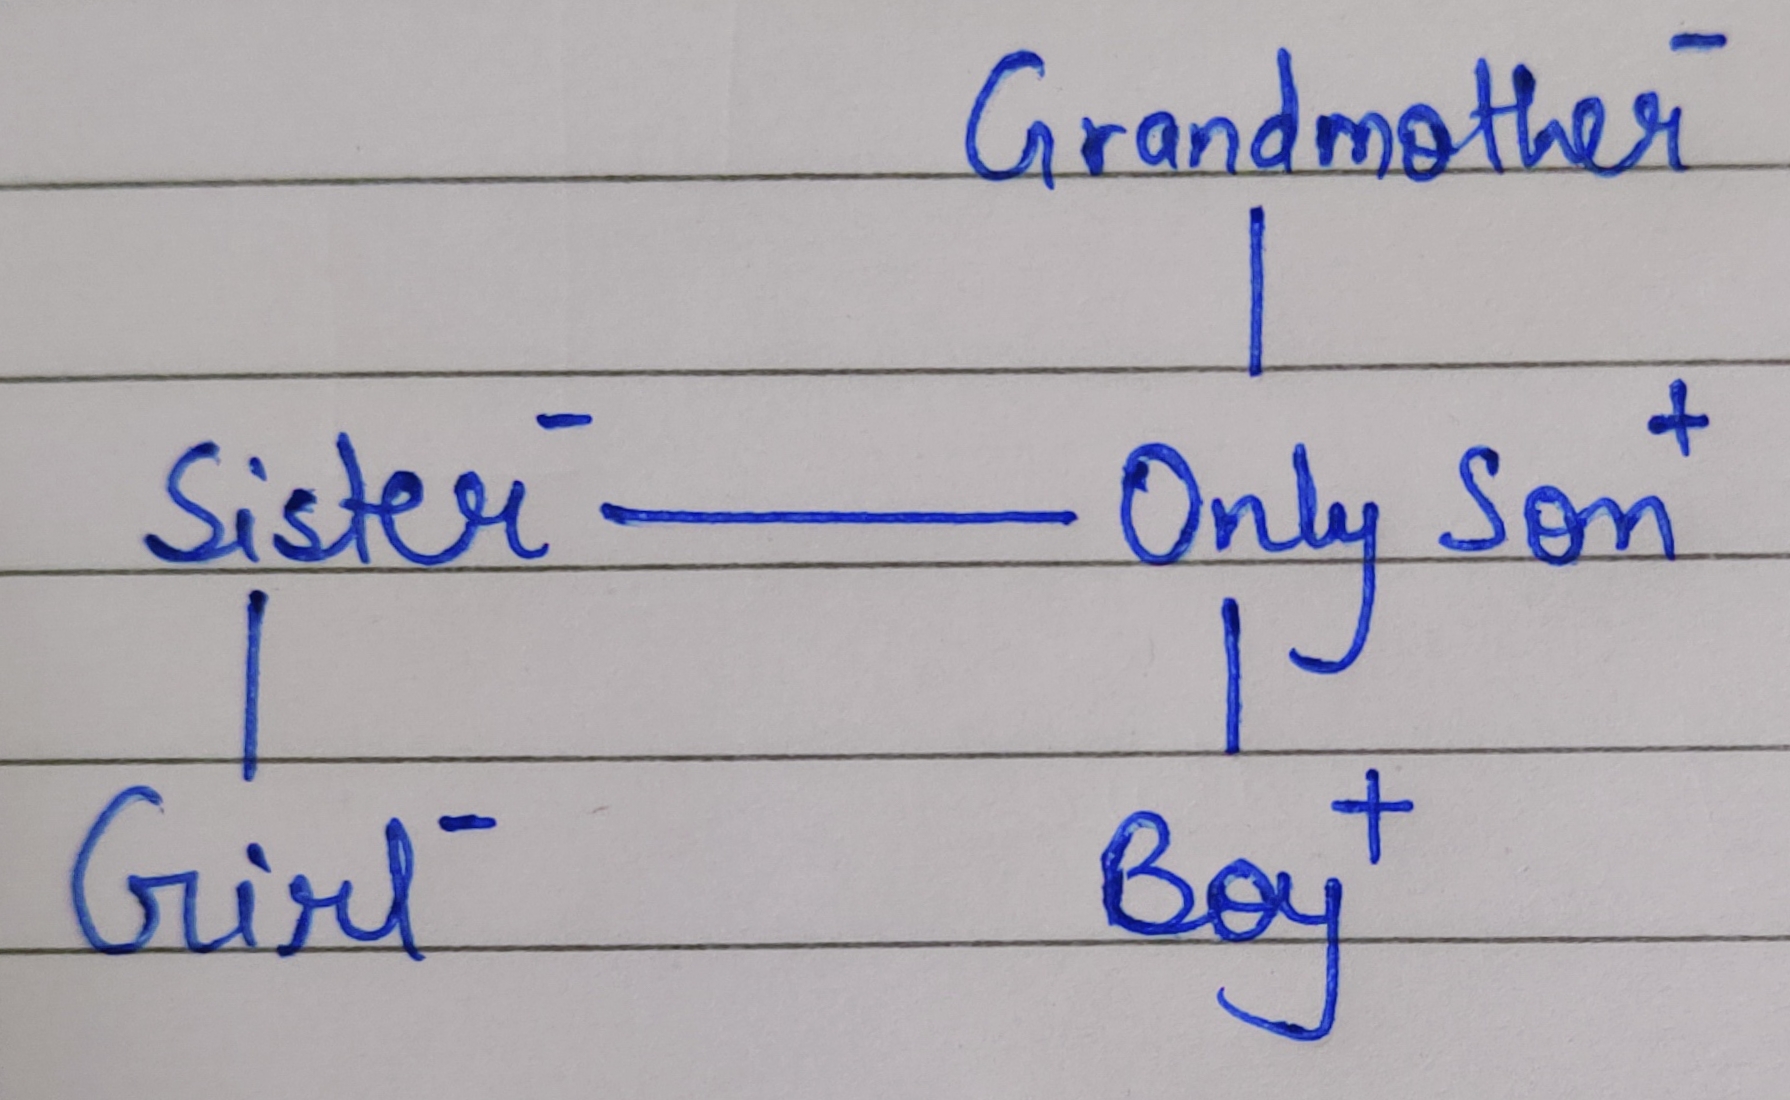 Grandmother -
Sister - — Only Son +
Girl - Boy +